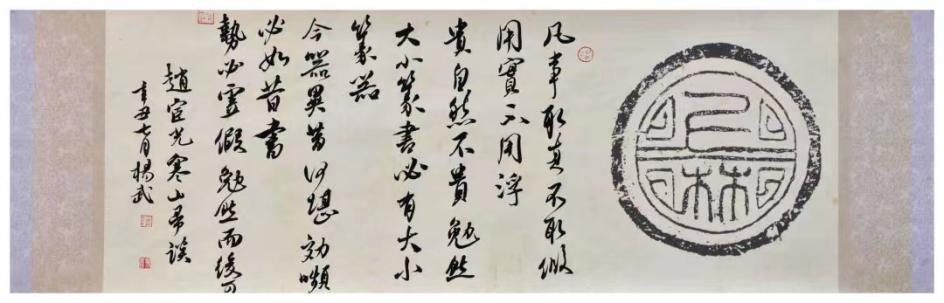 凡事取真不取假
用實不用浮
貴自然不貴勉然
大小篆書必有大小
篆器
今器異昔何堪効嚬
必如昔書
勢必虛假勉然而後可
趙宧光寒山帚談
辛丑七月楊武